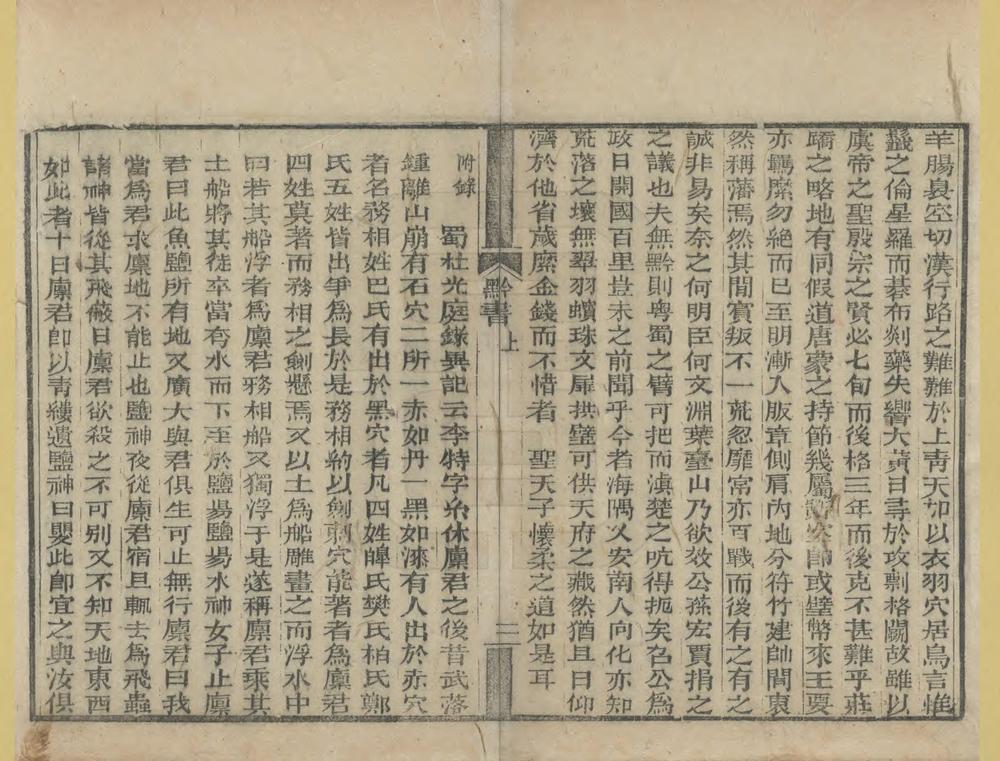 羊腸㠯空切漢行路之難難於上青天加以衣羽穴居鳥言惟
鬷之倫星羅而棊布剡藥失嚮大黃日尋於攻剽格鬭故雖以
虞帝之聖殷宗之賢必七旬而後格三年而後克不甚難乎莊
蹻之略地有同假道唐蒙之持節幾屬 卽或璧幣來王要
亦羈縻勿絶而已至明漸入版章側肩內地分符竹建帥閫衷
然稱藩焉然其間賓叛不一兠忽靡常亦百戰而後有之有之
誠非易矣奈之何明臣何文淵葉臺山乃欲效公孫宏賈捐之
之議也夫無黔則粤蜀之臂可把而滇楚之吭得扼矣召公爲
政日闢國百里豈未之前聞乎今者海隅乂安南人向化亦知
荒落之壤無翠羽蠙珠文犀拱璧可供天府之藏然猶且日仰
濟於他省歲縻金錢而不惜者 聖天子懷柔之道如是耳
黔書 上 二
附錄
蜀杜光庭錄異記云李特字糸休廩君之後昔武落
鍾離山崩有石穴二所一赤如丹一黑如漆有人出於赤穴
者名務相姓巴氏有出於黑穴者凡四姓皥氏樊氏柏氏鄭
氏五姓皆出爭爲長於是務相約以劍刺穴能著者爲廩君
四姓莫著而務相之劍懸焉又以土爲船雕畫之而浮水中
曰若其船浮者爲廩君務相船又獨浮于是遂稱廩君乘其
土船將其徒卒當夸水而下至於鹽場鹽場水神女子止廩
君曰此魚鹽所有地又廣大與君俱生可止無行廩君曰我
當爲君求廩地不能止也鹽神夜從廩君宿旦輒去爲飛蟲
諸神皆從其飛蔽日廩君欲殺之不可別又不知天地東西
如此者十日廩君卽以青縷遺鹽神曰嬰此卽宜之與汝俱